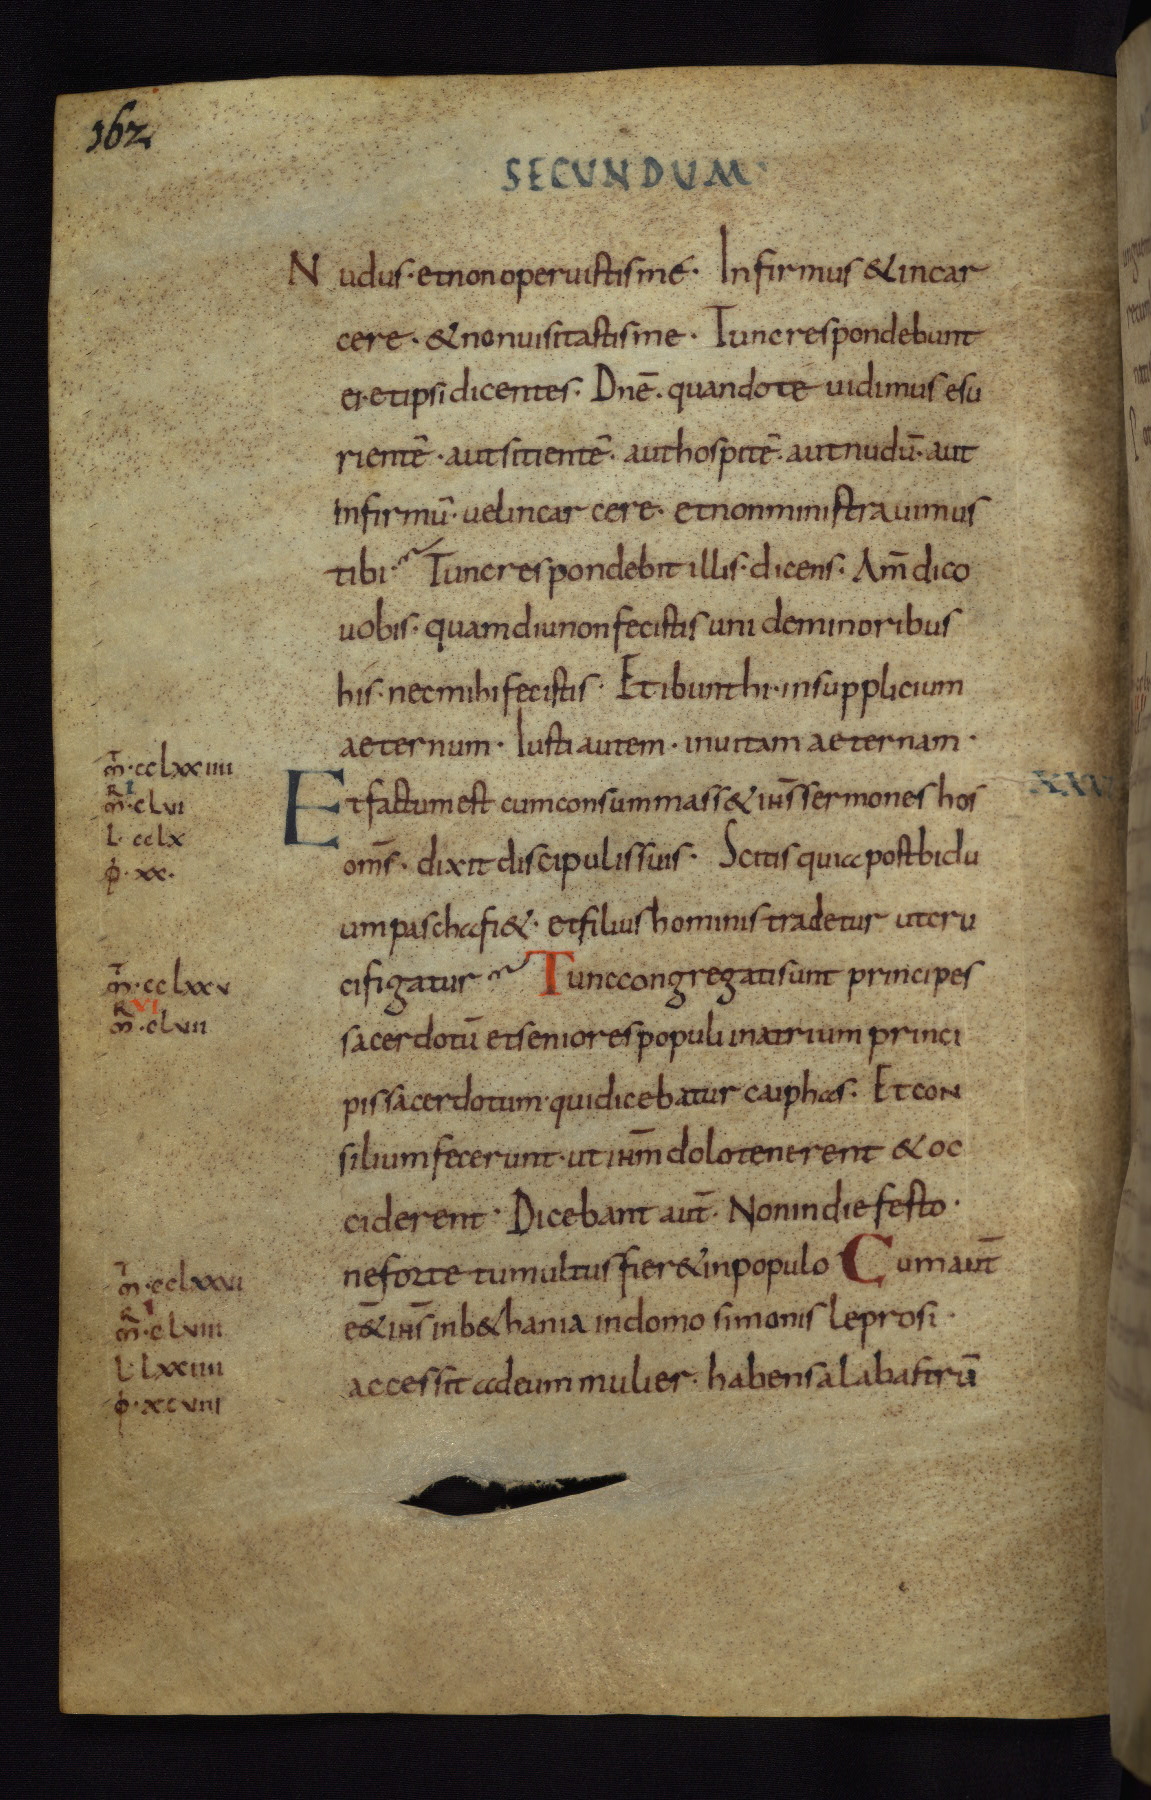 162
SECUNDUM·
Nudus· et non operuistis me· Infirmus & incar
cere· & non uisitastis me· Tunc respondebunt
ei· et ipsi dicentes· Dnē· quando te uidimus esu
rientē· aut sitientē· aut hospitē· aut nudū· aut
infirmū· uel in carcere· et non ministrauimus
tibi· Tunc respondebit illis· dicens· Am̄ dico
uobis· quamdiu non fecistis uni de minoribus
his· nec mihi fecistis· Et ibunt hi· in supplicium
aeternum· Iusti autem· in uitam aeternam·
m̄·cclxxiiii
RI
m̄·clvi
l·cclx
φ·xx·
Et factum est cum consummass& ihs̄ sermones hos
XXVI
om̄s· dixit discipulis suis· Scitis quia post bidu
um pascha fi&· et filius hominis tradetur ut cru
cifigatur Tunc congregati sunt principes
m̄·cclxxv
RVI
m̄·clvii
sacerdotū et seniores populi in atrium princi
pis sacerdotum· qui dicebatur caiphas· Et con
silium fecerunt· ut ihm̄ dolo tenerent & oc
ciderent· Dicebant aut̄· Non in die festo·
ne forte tumultus fier& in populo Cum aut̄
m̄·cclxxvi
RI
m̄·clviii
l·lxxiiii
φ·xcviii
eē& ihs̄ in b&hania in domo simonis leprosi·
accessit ad eum mulier· habens alabastrū